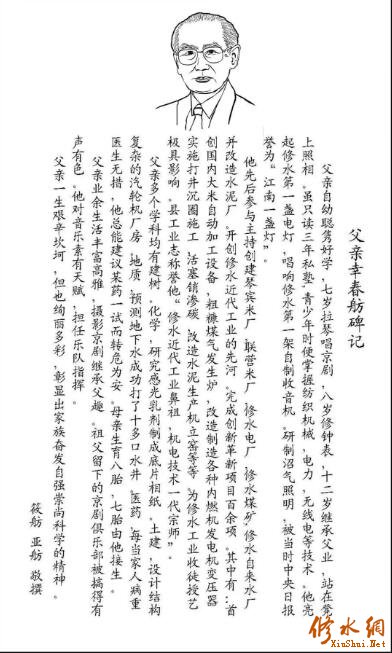 父亲幸春舫碑记
父亲自幼聪秀好学，七岁拉琴唱京剧，八岁修钟表，十二岁继承父业，站在凳
上照相。虽只读三年私塾，青少年时便掌握纺织机械，电力，无线电等技术。他亮
起修水第一盏电灯，唱响修水第一架自制收音机。研制沼气照明，被当时中央日报
誉为“江南一盏灯”。
他先后参与主持创建琴宾米厂，联营米厂，修水电厂，修水煤矿，修水自来水厂
并改造水泥厂，开创修水近代工业的先河。完成创新革新项目百余项。其中有：首
创国内大米自动加工设备，粗糠煤气发生炉，改造制造各种内燃机发电机变压器
实施打井沉圈施工，活塞销渗碳，改造水泥生产机立窑等等。为修水工业收徒授艺
极具影响。县工业志称誉他“修水近代工业鼻祖，机电技术一代宗师”。
父亲多个学科均有建树。化学，研究感光乳剂制成底片相纸。土建，设计结构
复杂的汽轮机厂房，地质，预测地下水成功打了十多口水井，医药，每当家人病重
医生无措，他总能建议某药一试而转危为安。母亲生育八胎，七胎由他接生。
父亲业余生活丰富高雅，摄影京剧继承父趣。祖父留下的京剧俱乐部被搞得有
声有色。他对音乐素有天赋，担任乐队指挥。
父亲一生艰辛坎坷，但也绚丽多彩，彰显出家族奋发自强崇尚科学的精神。
筱舫 亚舫 敬撰
修水網
XiuShui.Net